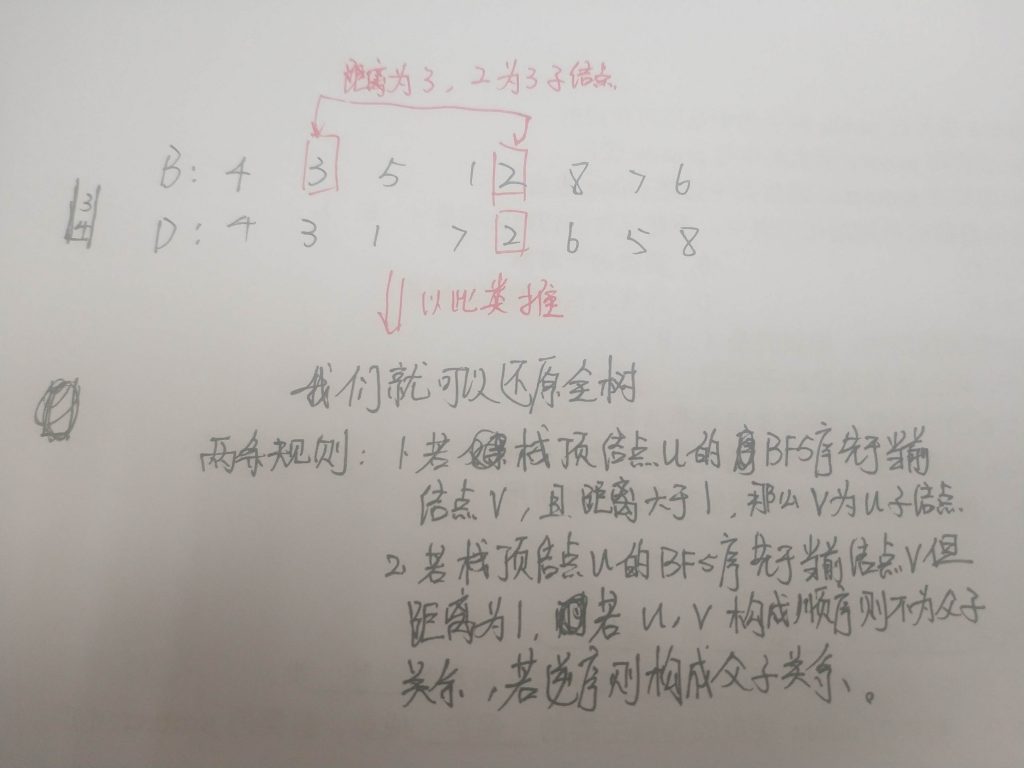 距离为3，2为3子结点
B: 4 3 5 1 2 8 7 6
3
4
D: 4 3 1 7 2 6 5 8
以此类推
我们就可以还原全树
两条规则: 1 若栈顶结点u的BFS序先于当前
结点V，且距离大于1，那么V为u子结点.
2 若栈顶结点u的BFS序先于当前结点V但
距离为1，若u,v构成顺序则不为父子
关系，若逆序则构成父子关系。